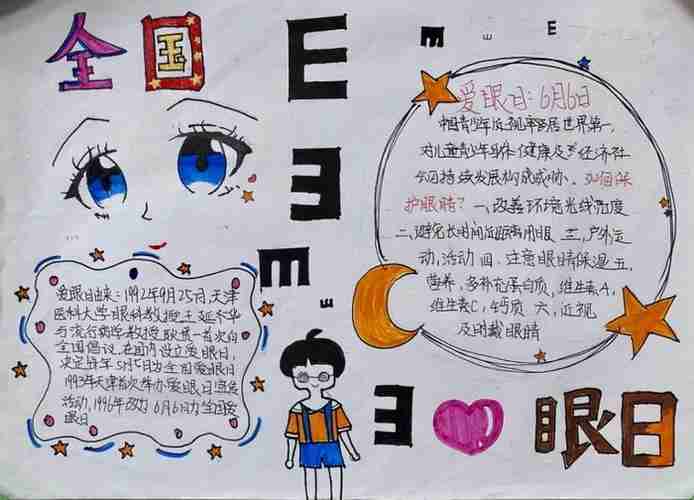 全国
E
E
E
E
E
E
E
E
爱眼日:6月6日
中国青少年近视率居世界第一,
对儿童青少年身体健康及至经济社
会可持续发展构成威胁、如何保
护眼睛?一、改善环境光线亮度
二、避免长时间近距离用眼 三、户外运
动、活动 四、注意眼睛保温 五、
营养,多补充蛋白质,维生素A,
维生素C,钙质 六、近视
及时戴眼睛
爱眼日由来:1992年9月25日,天津
医科大学眼科教授王延华
与流行病学教授耿贯一首次向
全国倡议,在国内设立爱眼日,
决定每年5月5日为全国爱眼日
1993年天津首次举办爱眼日宣传
活动,1996年改为6月6日为全国爱
眼日
眼日